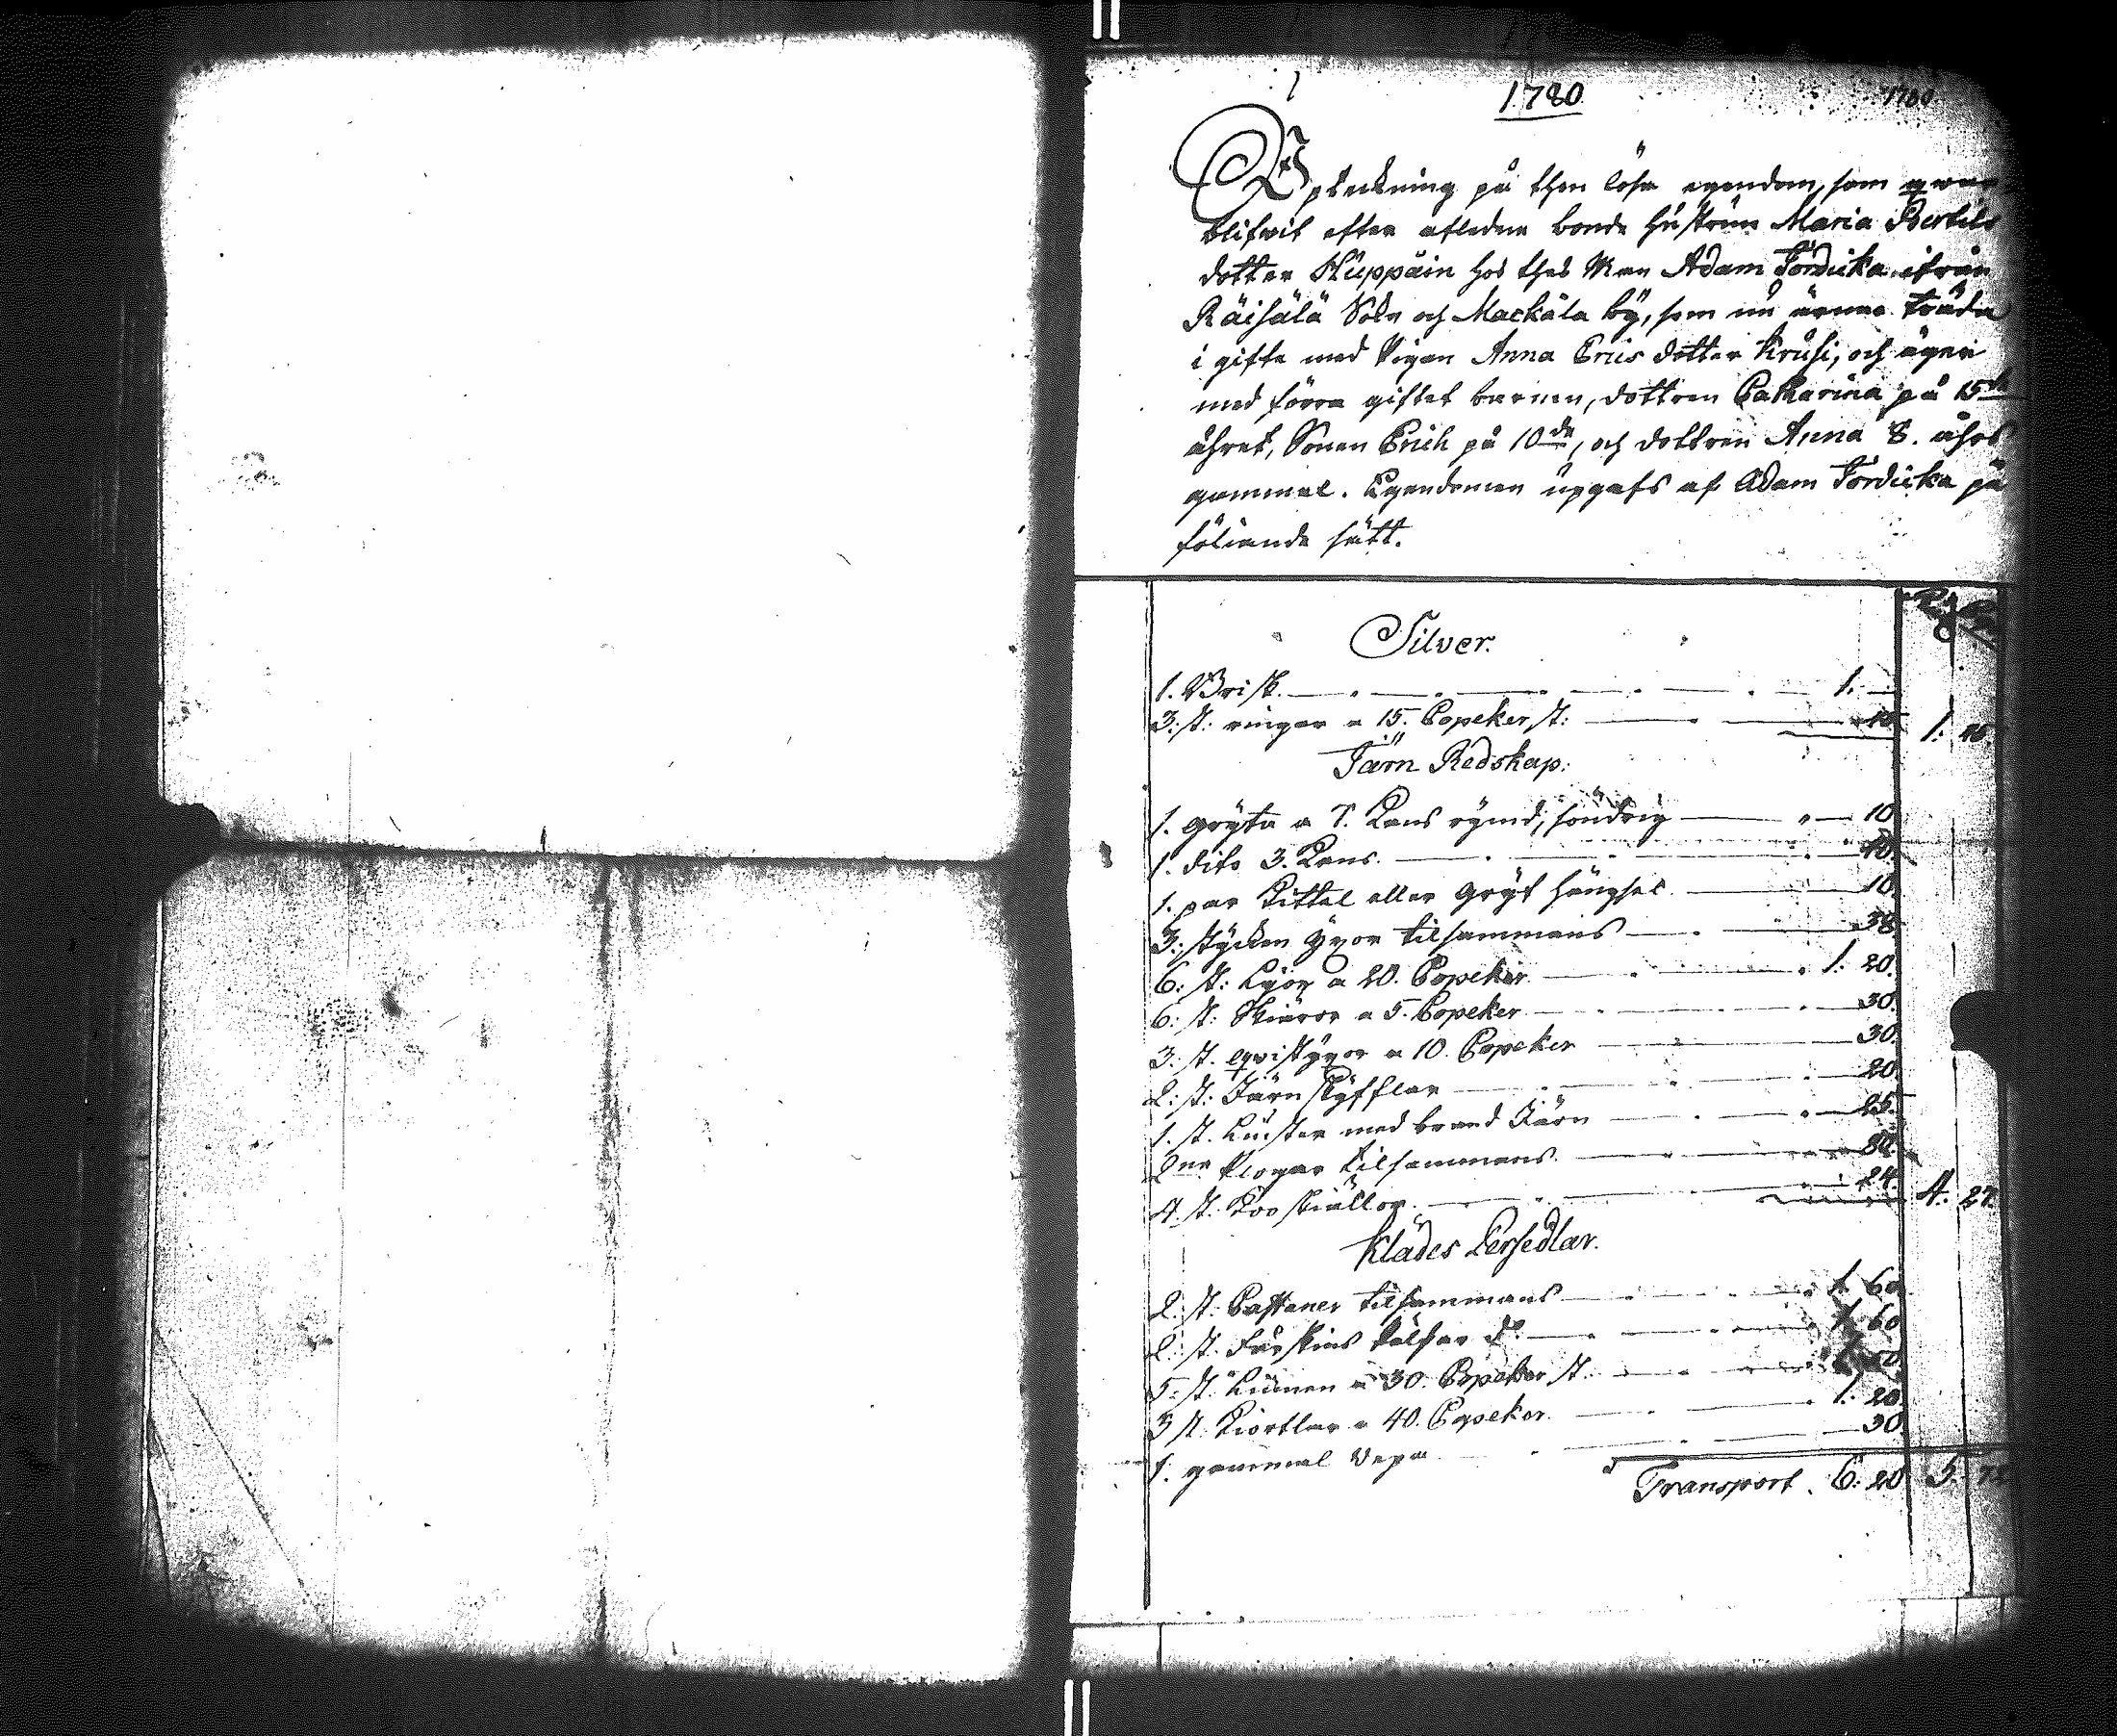 1780.
1780
Upteckning på then lösa egendom, som qwar
blifwit efter afledne bonde hustrun Maria Bertils
dotter Huppain hos thes Man Adam Tördicka ifrån
Räisälä Sokn och Mackåla by, som nu ärnar träda
i gifte med Pigan Anna Erics dotter Krusi, och äger
med förra giftet barnen, dottren Catharina på 15de
åhret, Sonen Erich på 10de, och dottren Anna 8. åhrs
gammal. Egendomen upgafs af Adam Tördicka på
följande sätt.
Silver.
1. Brisk. 1. —
3: st: ringar a 15. Copeker st: 45 1: 45.
Järn Redskap:
1. gryta a 7. Kans rymd, söndrig 10
1. dito 3. Kans. 40.
1. par Kittel eller Gryt hängsel 10.
3: stycken yxor tilsammans 38.
6: st: Liör a 20. Copeker 1: 20.
6: st: Skäror a 5. Copeker 30.
3: st. qvistyxor a 10. Copeker 30.
2: st: Järnskyfflar 20.
1. st. Liuster med brand Järn 25.
2ne Plogar tilsammans. 80.
4 st. Koo skiällor. 24. 4: 27.
Klädes Persedlar.
2: st: Caftaner tilsammans 1. 60
2: st. Fårskins Pälsar do. 1. 60
5: st. a 30. Copeker st. 1. 50.
3 st. Kiortlar a 40. Copeker. 1: 20
1. gammal Vepa 30.
Transport. 6: 20 5: 72